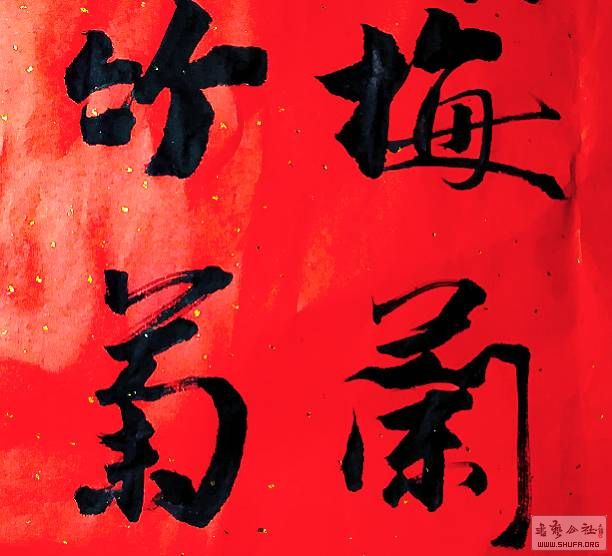 梅蘭
竹菊
書藝公社
WWW.SHUFA.ORG